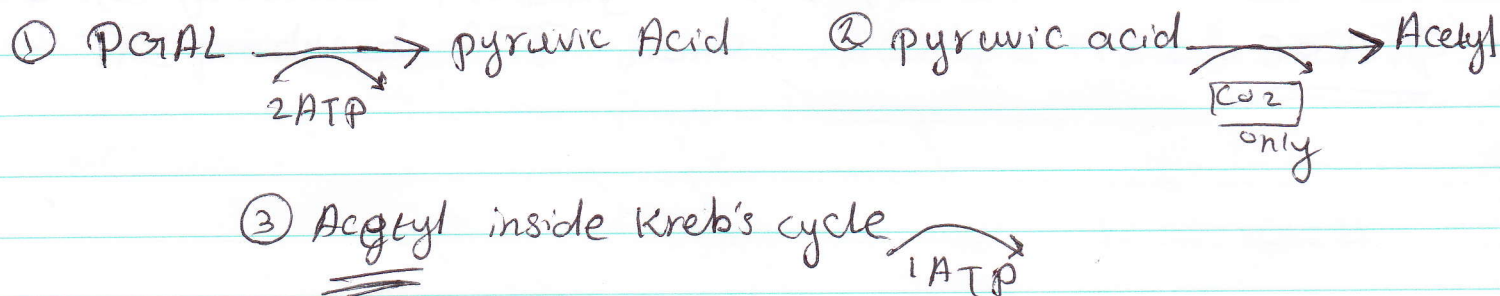 ① PGAL → pyruvic Acid ② pyruvic acid → Acetyl
2ATP
CO2
only
③ Acetyl inside Kreb's cycle
1ATP